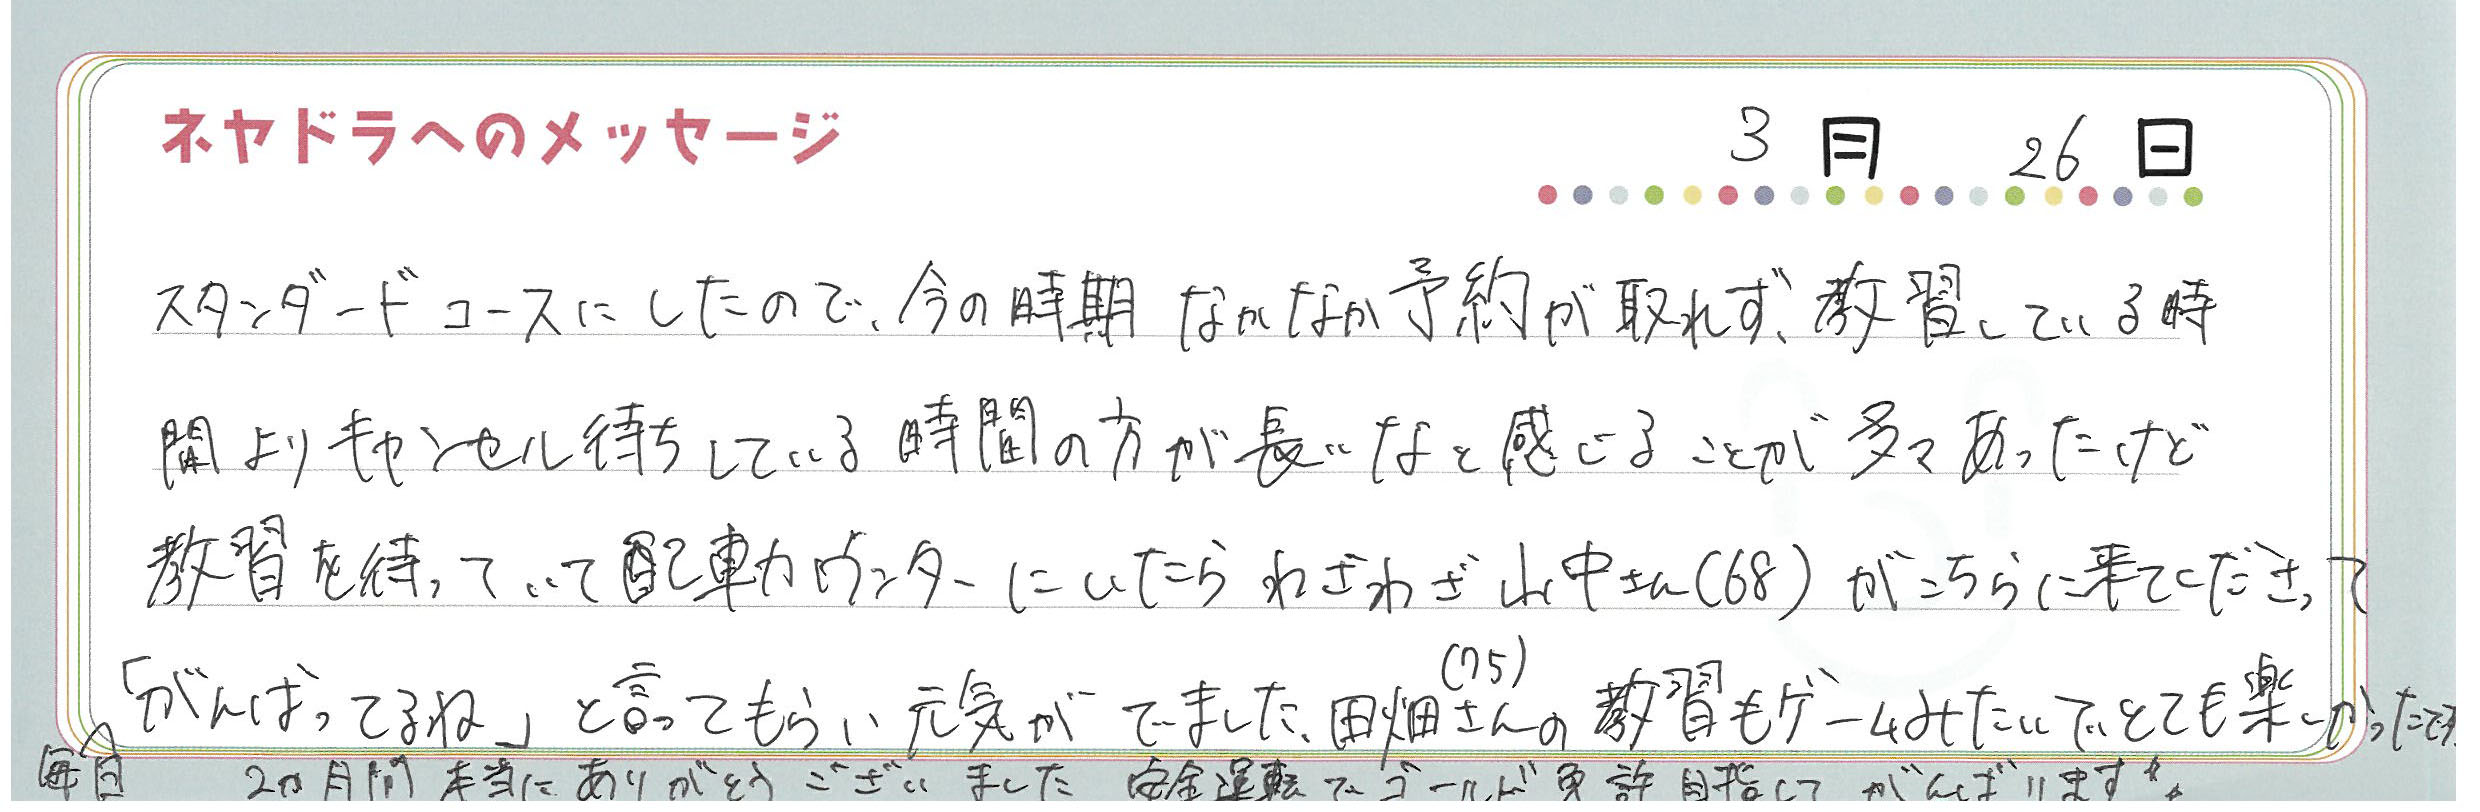 ネヤドラへのメッセージ
3月 26日
スタンダードコースにしたので、今の時期なかなか予約が取れず、教習している時
間よりキャンセル待ちしている時間の方が長いなと感じることが多々あったけど
教習を待っていて配車カウンターにいたらわざわざ山中さん(68)がこちらに来てくださって
「がんばってるね」と言ってもらい元気がでました。田畑さん(75)の教習もゲームみたいでとても楽しかったです
毎日
2カ月間 本当にありがとうございました 安全運転でゴールド免許目指してがんばります